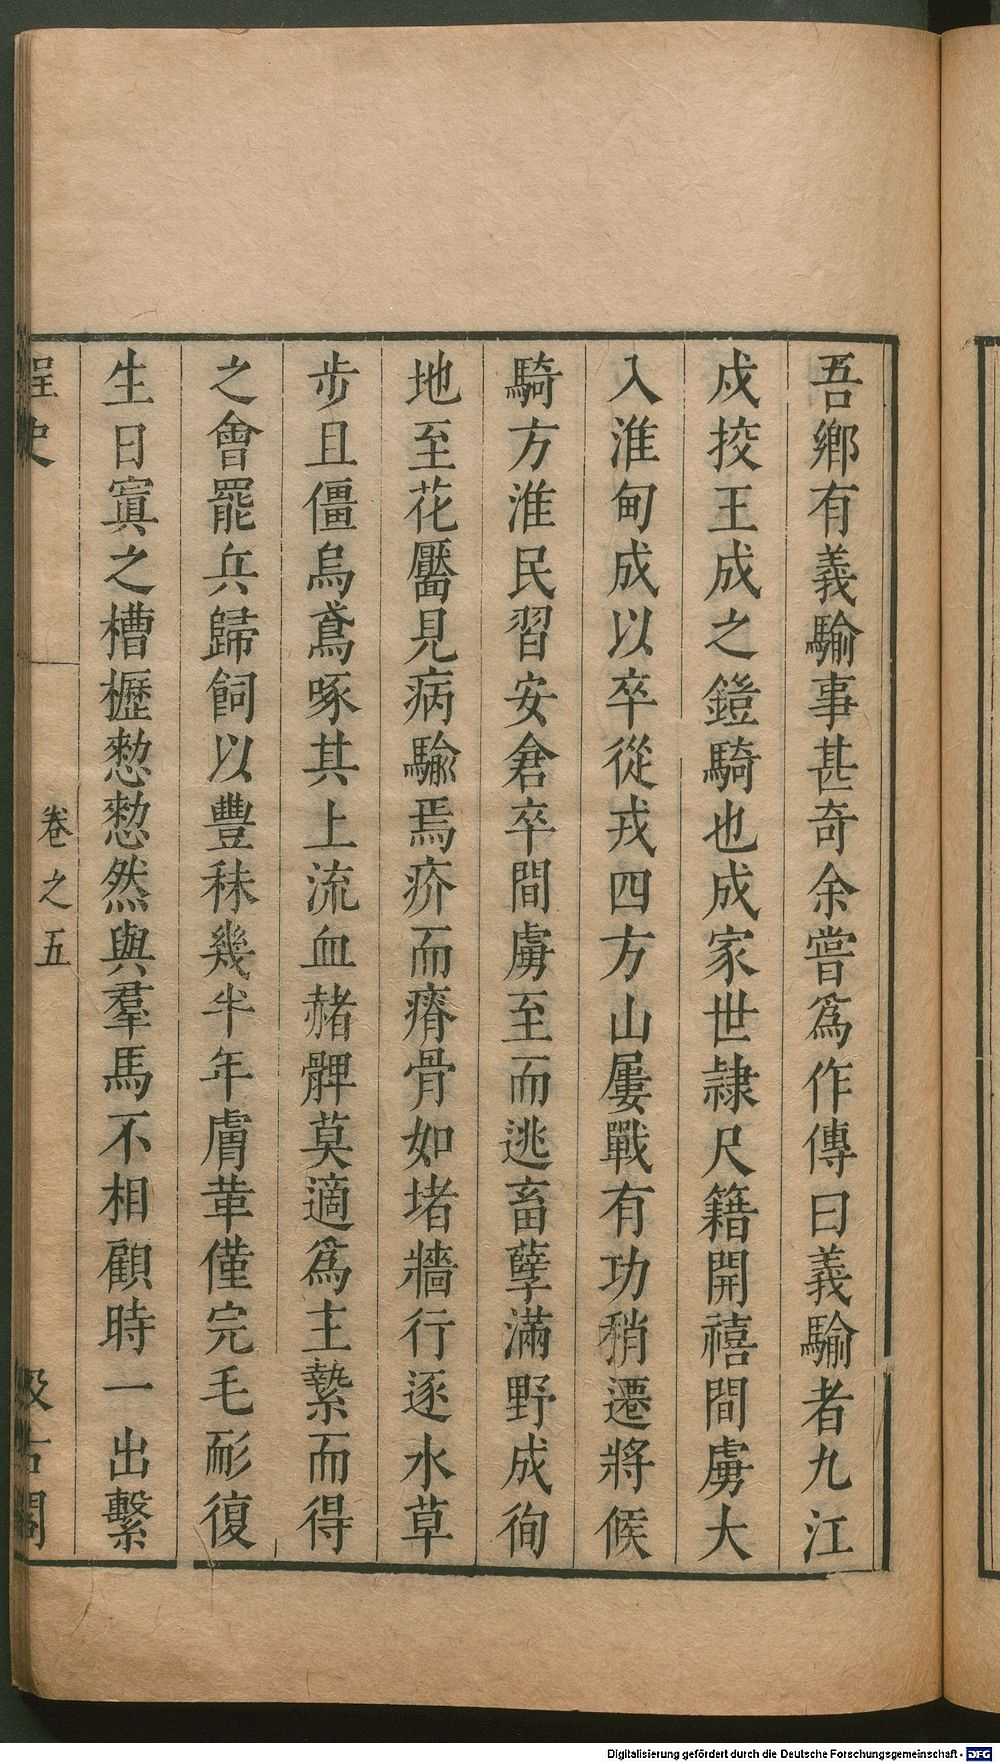 吾鄉有義騟事甚奇余嘗爲作傳曰義騟者九江
戍挍王成之鎧騎也成家世隷尺籍開禧間虜大
入淮甸成以卒從戎四方山屢戰有功稍遷將候
騎方淮民習安倉卒間虜至而逃畜孽滿野成徇
地至花靨見病騟焉疥而瘠骨如堵牆行逐水草
步且僵烏鳶啄其上流血赭髀莫適爲主縶而得
之會罷兵歸飼以豐秣幾半年膚革僅完毛耏復
生日寘之槽櫪愸愸然與羣馬不相顧時一出繫
桯史
卷之五
汲古閣
Digitalisierung gefördert durch die Deutsche Forschungsgemeinschaft - DFG